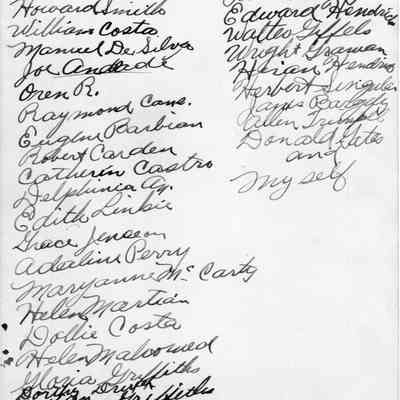 Howard Smith
William Costa
Manuel De Silva
Joe Andrade
Oren R.
Raymond Cane.
Eugene Barbian
Robert Carden
Catherin Castro
Delphinia Ag.
Edith Linkie
Grace Jensen
Adeline Perry
Maryanne McCarty
Helen Martian
Dollie Costa
Helen Maloomed
Gloria Griffiths
Edward Hendrick
Walter Giffels
Wright Graman
Hiran Hendrick
Herbert
James
Allen
Donald
and
Myself